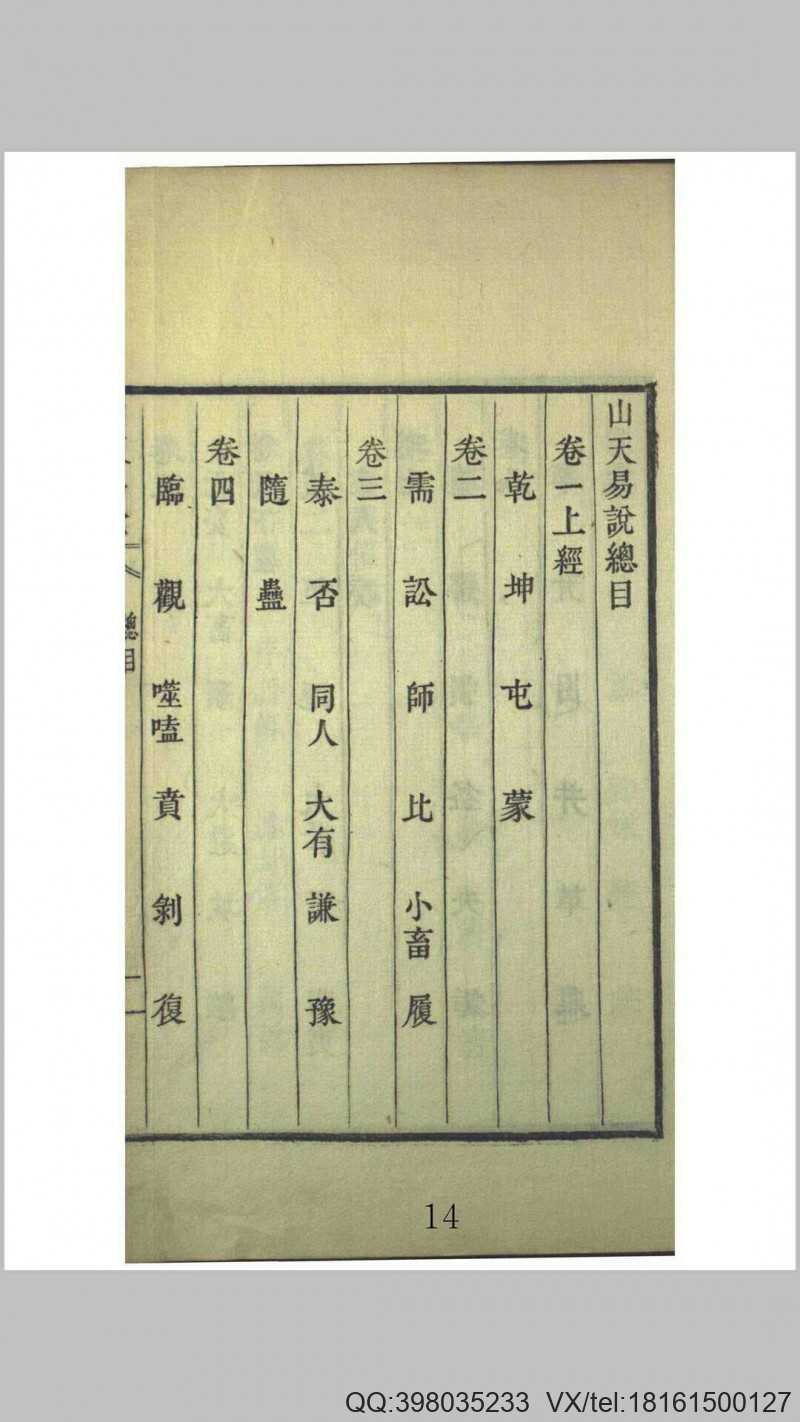 山天易說總目
卷一上經
乾 坤 屯 蒙
卷二
需 訟 師 比 小畜 履
卷三
泰 否 同人 大有 謙 豫
隨 蠱
卷四
臨 觀 噬嗑 賁 剝 復
總目
一
14
QQ:398035233 VX/tel:18161500127